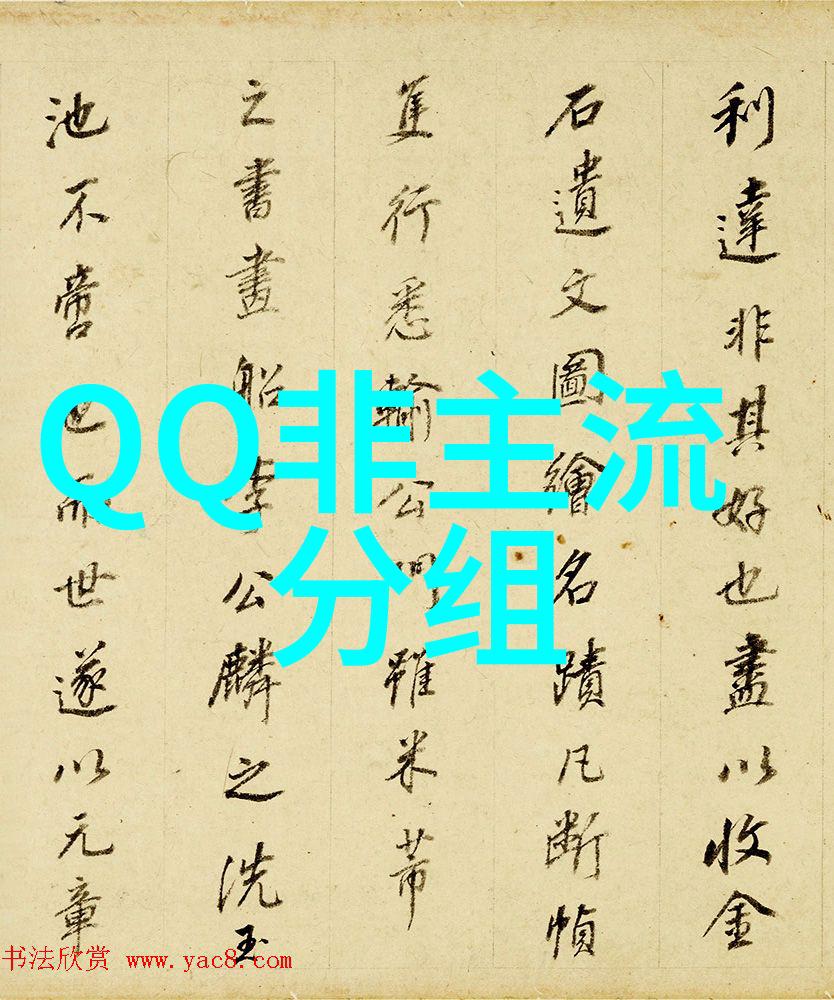 利達非其好也盡以收金
石遺文圖繪名蹟凡断幀
隻行悉輸公門雖米芾
之書畫船李公麟之洗玉
池不啻也而世遂以元章
QQ非主流
分组
书法欣赏 www.yac8.com